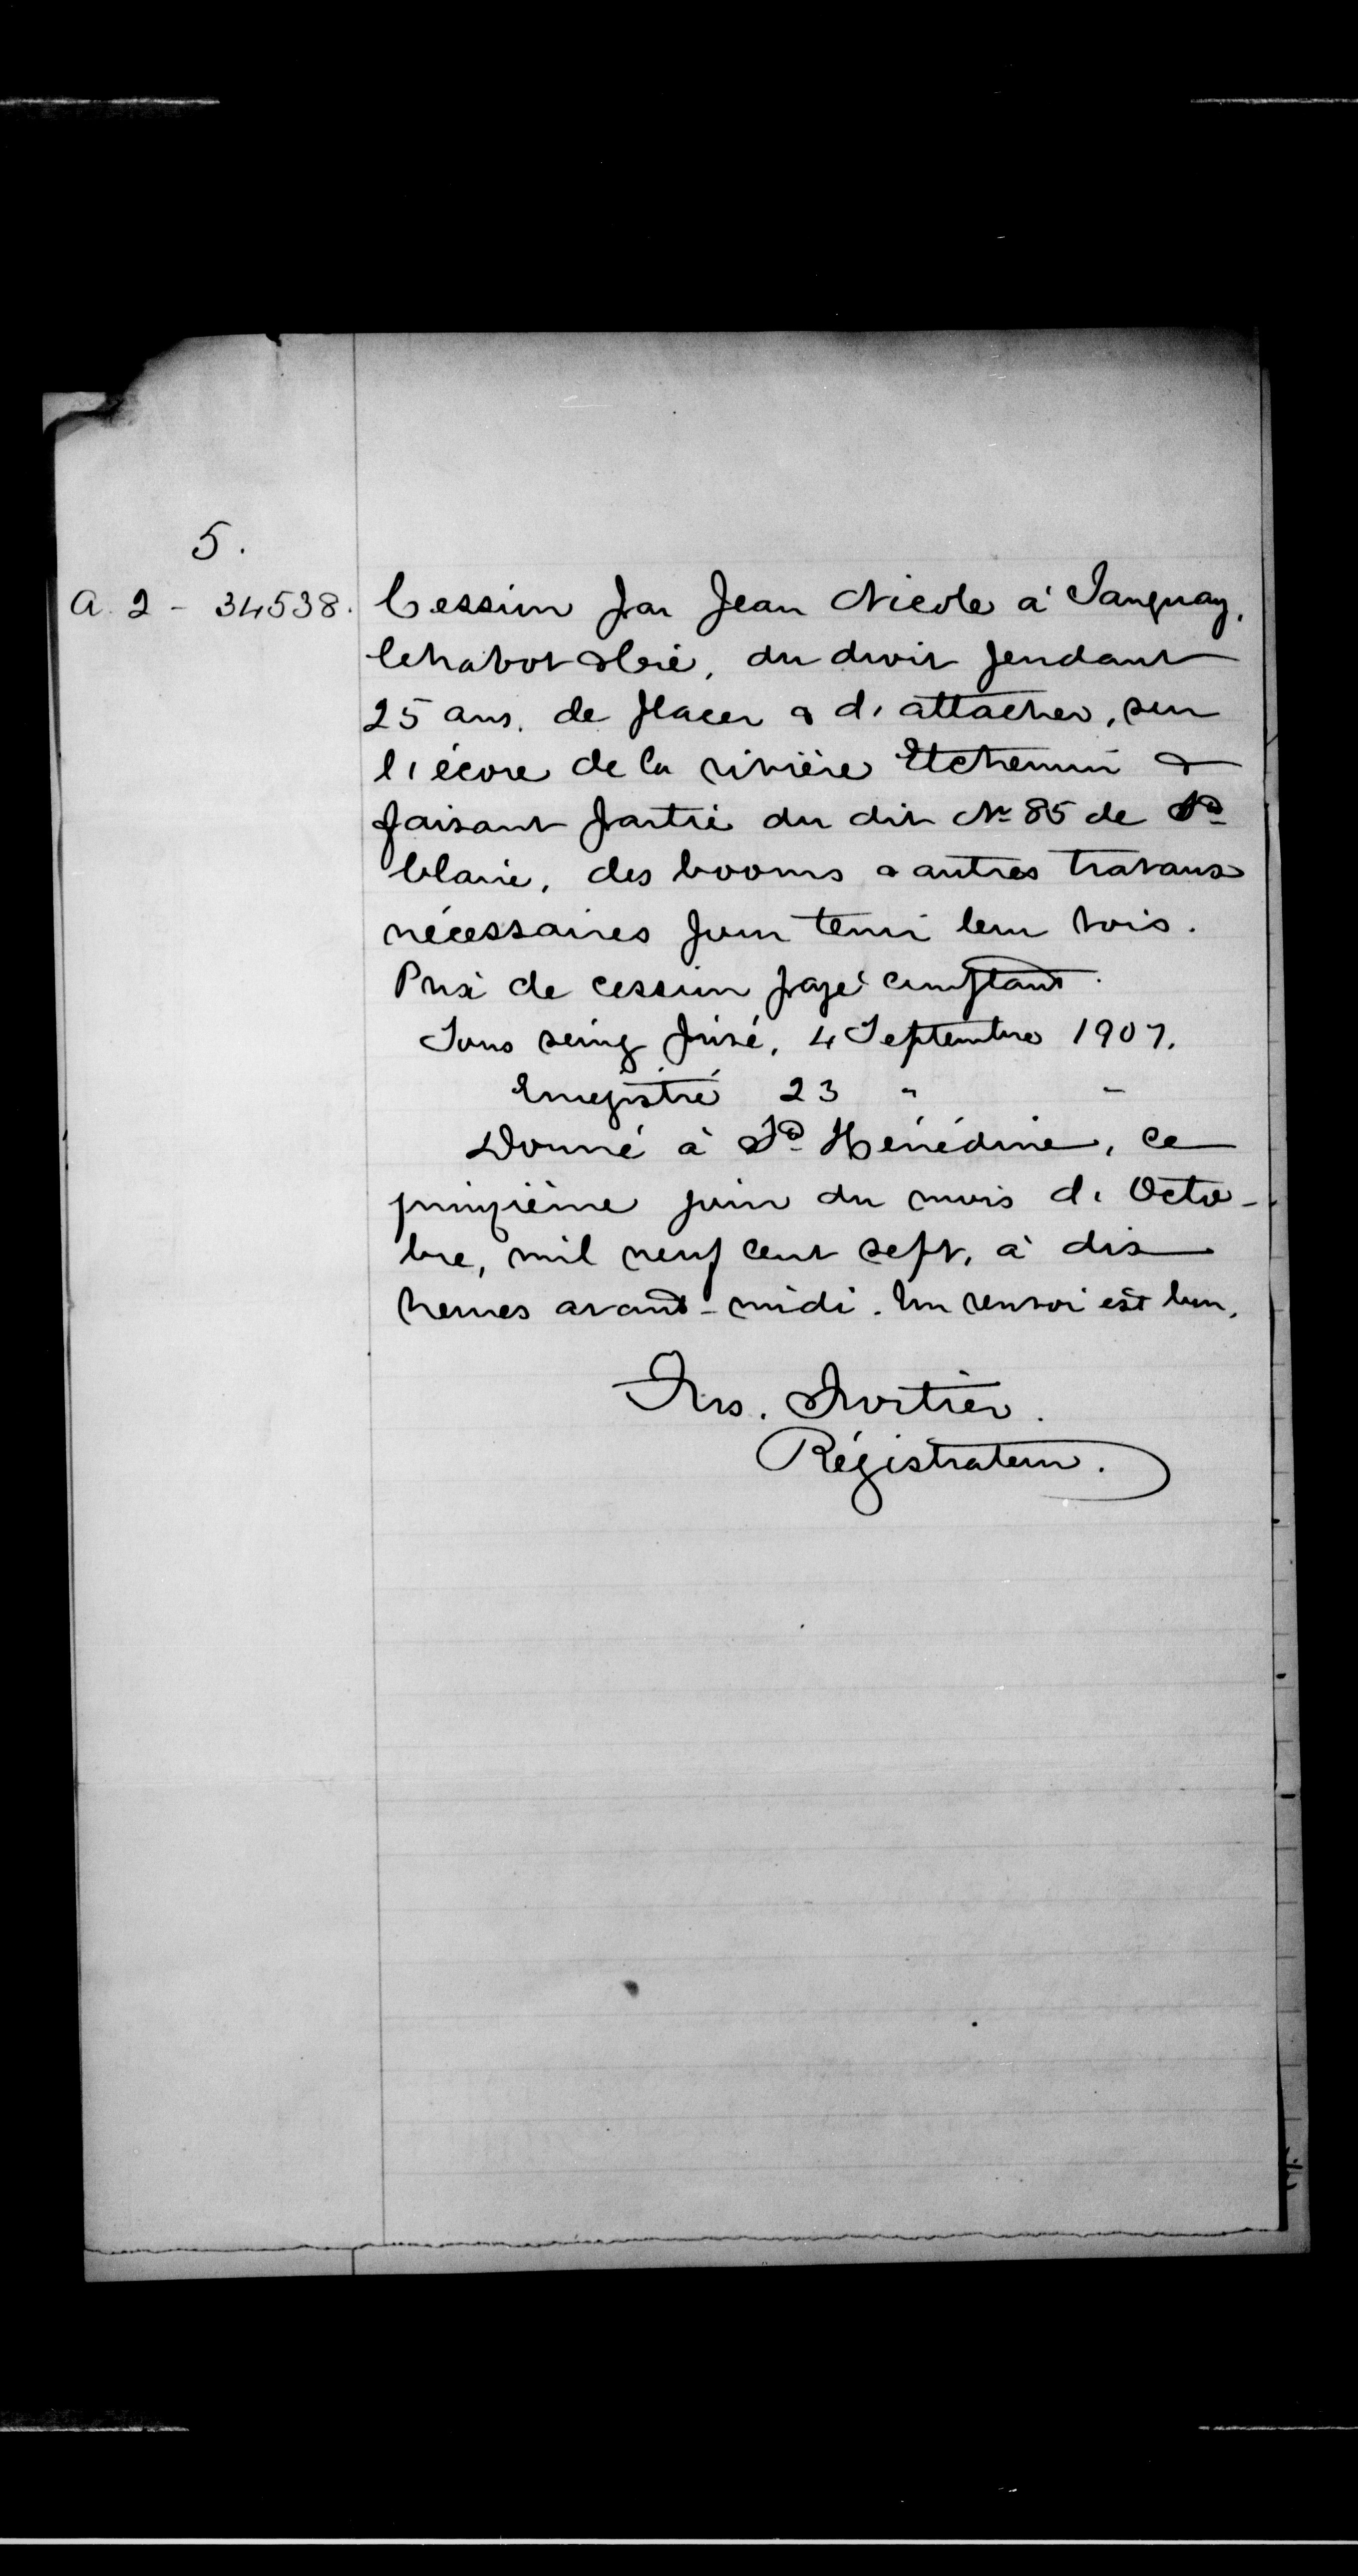 5.
A. 2 - 34538. Cession par Jean Nicole à Tanguay,
Chabot & Cie, du droit pendant
25 ans, de placer & d'attacher, sur
l'écore de la rivière Etchemin &
faisant partie du dit No 85 de Ste
Claire, des booms & autres travaux
nécessaires pour tenir leur bois.
Prix de cession payé comptant.
Sous seing privé, 4 Septembre 1907.
Enregistré 23 " "
Donné à Ste Hénédine, ce
quinzième jour du mois d'Octo-
bre, mil neuf cent sept, à dix
heures avant-midi. Un renvoi est bon.
Frs. Fortier.
Régistrateur.